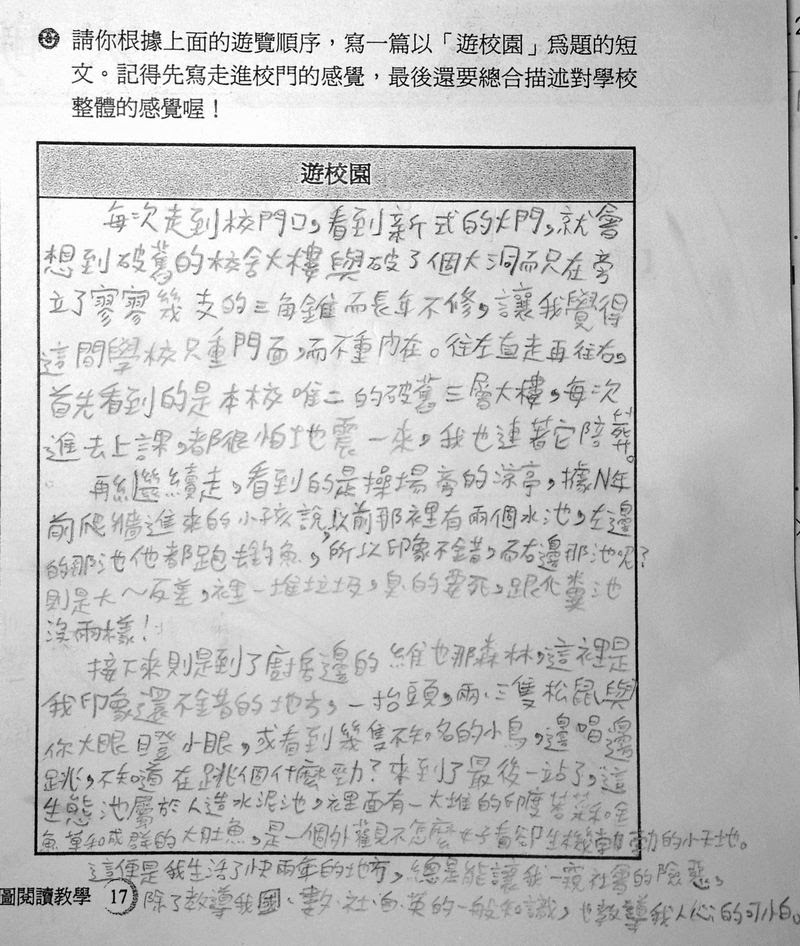 請你根據上面的遊覽順序，寫一篇以「遊校園」為題的短
文。記得先寫走進校門的感覺，最後還要總合描述對學校
整體的感覺喔！
遊校園
每次走到校門口，看到新式的大門，就會
想到破舊的校舍大樓與破了個大洞而只在旁
立了寥寥幾支的三角錐而長年不修，讓我覺得
這間學校只重門面，而不重內在。往左直走再往右，
首先看到的是本校唯二的破舊三層大樓，每次
進去上課，都很怕地震一來，我也連著它陪葬。
再繼續走，看到的是操場旁的涼亭，據N年
前爬牆進來的小孩說，以前那裡有兩個水池，左邊
的那池他都跑去釣魚，所以印象不錯，而右邊那池呢？
則是大～反差，裡一堆垃圾，臭的要死，跟化糞池
沒兩樣！
接下來則是到了廚房邊的維也那森林，這裡是
我印象還不錯的地方，一抬頭，兩、三隻松鼠與
你大眼瞪小眼，或看到幾隻不知名的小鳥，邊唱邊
跳，不知道在跳個什麼勁？來到了最後一站了，這
生態池屬於人造水泥池，裡面有一大堆的印度莕菜和金
魚草和成群的大肚魚，是一個外觀不怎麼好看卻生機勃勃的小天地。
這便是我生活了快兩年的地方，總是能讓我一窺社會的險惡，
圖閱讀教學 17 除了教導我國、數、社、自、英的一般知識，也教導我人心的可怕。